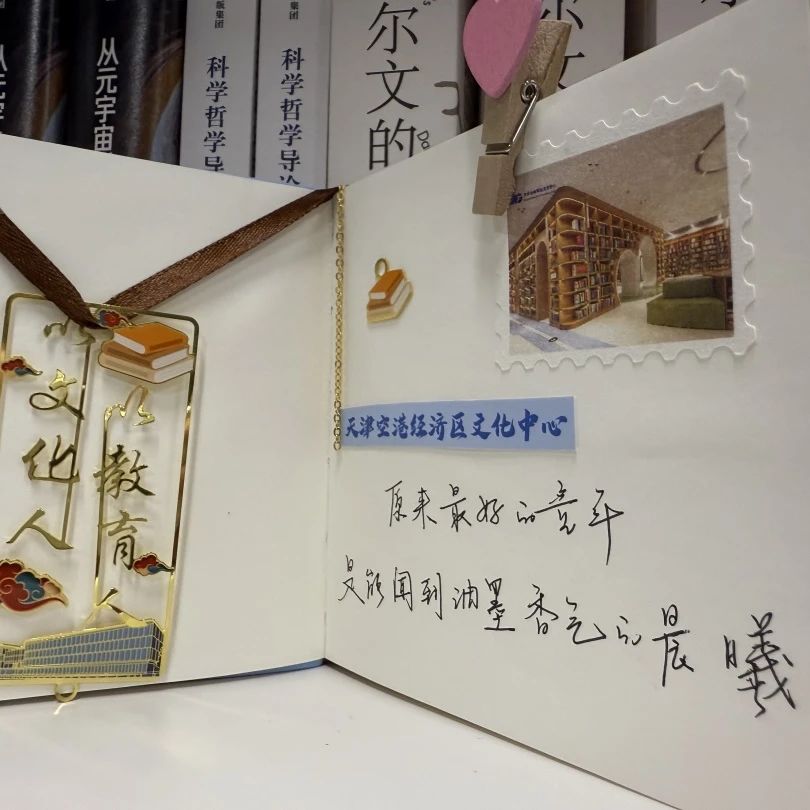 从元宇
从元宇宙
版集团
科学哲学导论
集团
科学哲学导论
尔文的
以文化人
以教育人
天津空港经济区文化中心
原来最好的童年
是能闻到油墨香气的晨曦